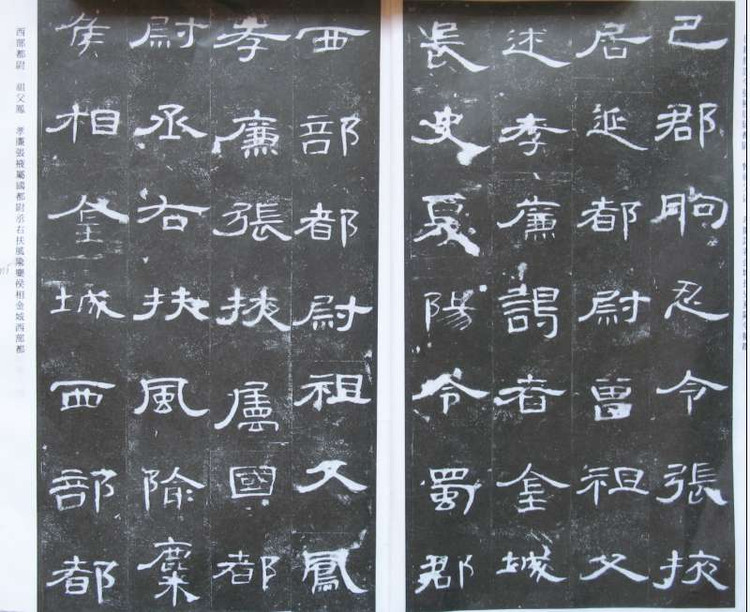 巴郡朐忍令張掖
居延都尉曾祖父
述孝廉謁者金城
長史夏陽令蜀郡
西部都尉祖父鳳
孝廉張掖屬國都
尉丞右扶風隃麋
侯相金城西部都
西部都尉 祖父鳳 孝廉張掖屬國都尉丞右扶風隃麋侯相金城西部都